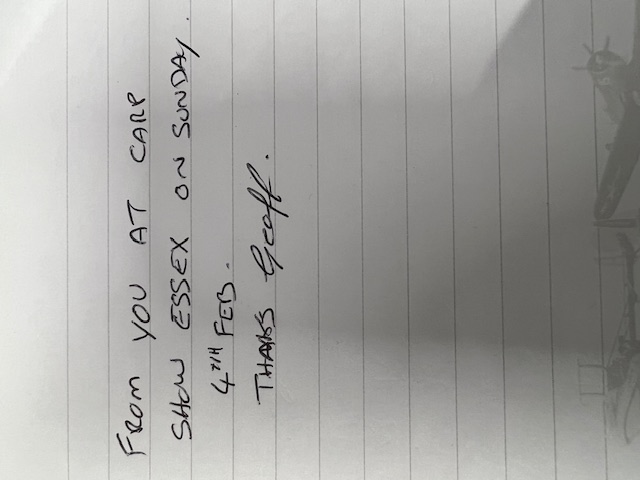 FROM YOU AT CARP
SHOW ESSEX ON SUNDAY.
4TH FEB.
THANKS Geoff.